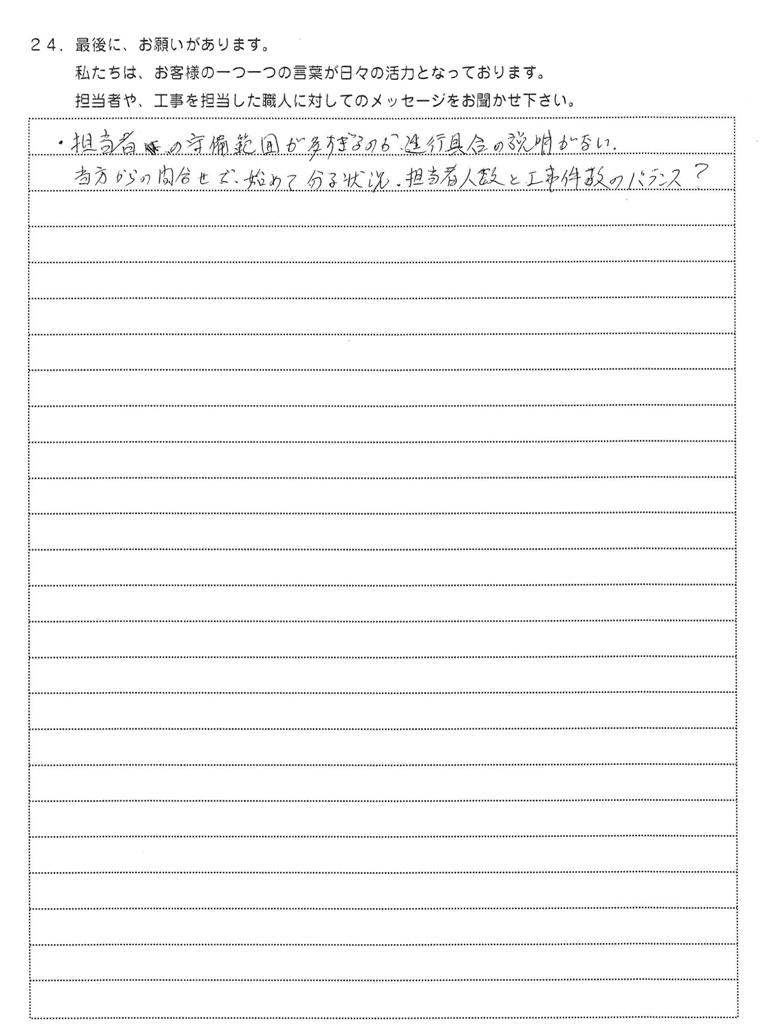 ２４．最後に、お願いがあります。
私たちは、お客様の一つ一つの言葉が日々の活力となっております。
担当者や、工事を担当した職人に対してのメッセージをお聞かせ下さい。
・担当者の守備範囲が多すぎるのか、進行具合の説明がない.
当方からの問合せで、始めて分る状況．担当者人数と工事件数のバランス？